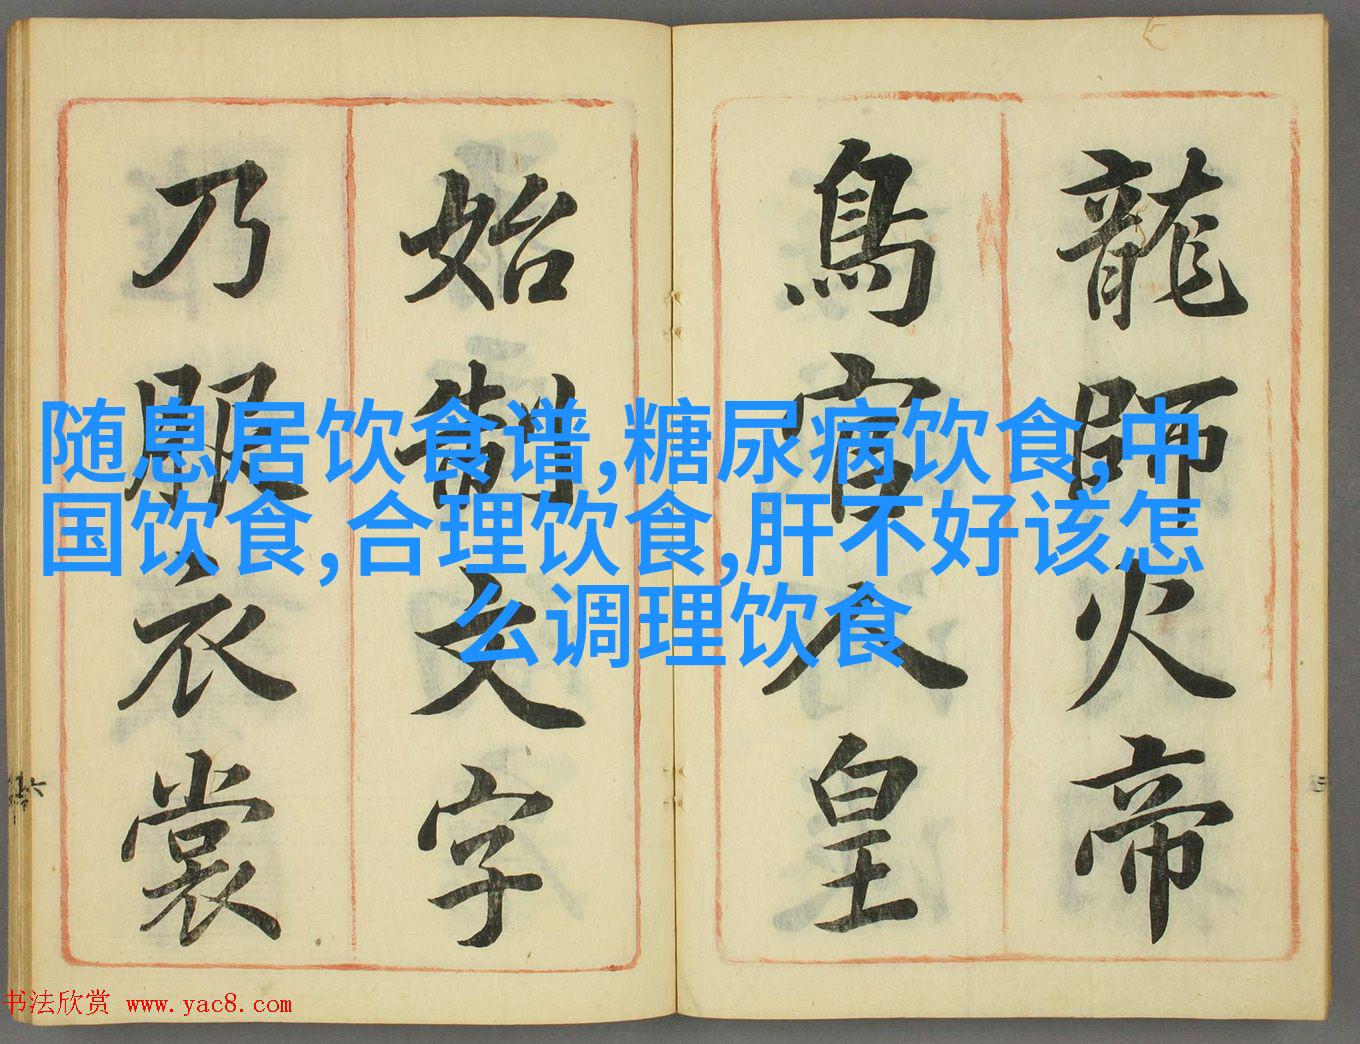 龍師火帝
鳥官人皇
始制文字
乃服衣裳
随息居饮食谱,糖尿病饮食,中
国饮食,合理饮食,肝不好该怎
么调理饮食
书法欣赏 www.yac8.com